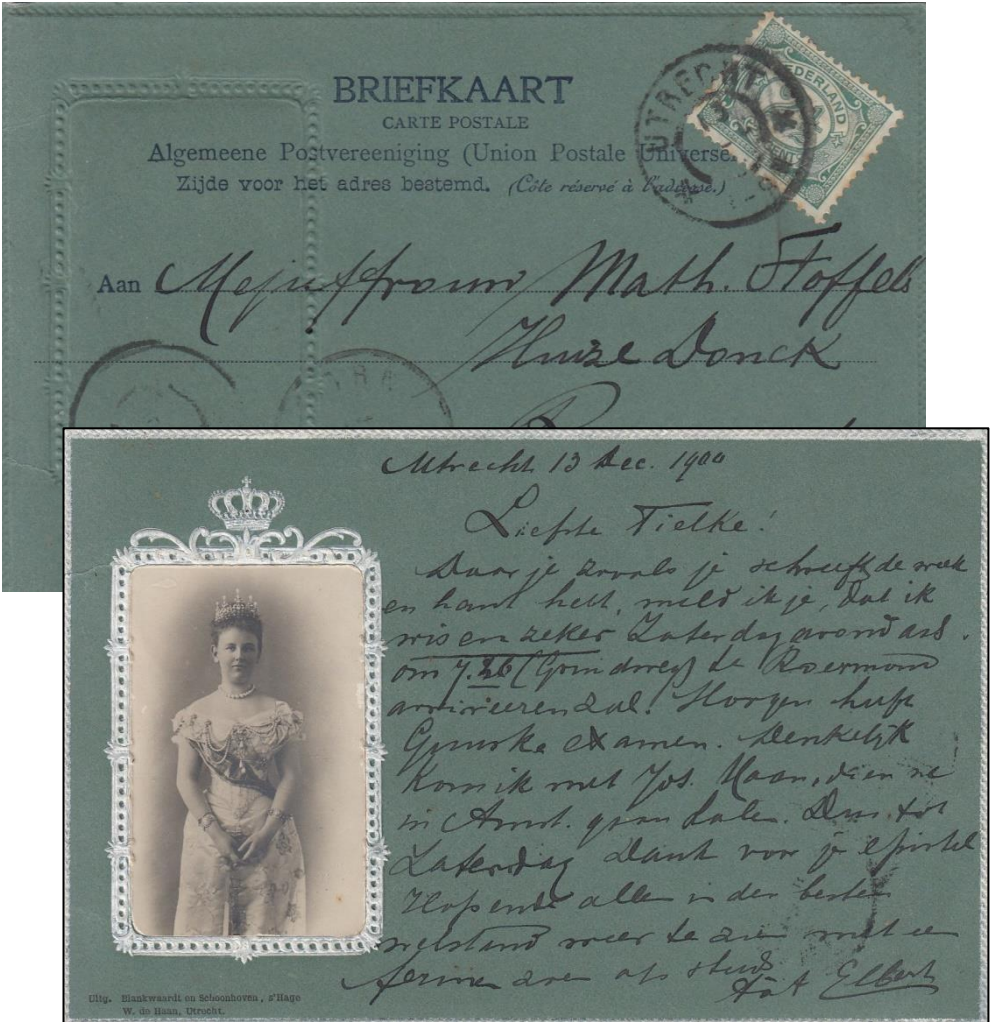 BRIEFKAART
CARTE POSTALE
Algemeene Postvereeniging (Union Postale Universe
Zijde voor het adres bestemd. (Côte réservé à l'adresse.)
UTRECHT
NEDERLAND
CENT
Aan Mejuffrouw Math. Stoffels
Huize Donck
Utrecht 13 Dec. 1900
Liefste Tielke!
Daar je zooals je schreeft de week
en hant hebt, meld ik je, dat ik
wis en zeker Zaterdagavond as.
om 7.26 (Grindweg) te Roermond
arriveeren zal. Morgen heeft
examen. Denkelijk
kom ik met Jos. Haan, dien we
in Amst. gaan halen. Dus tot
Zaterdag Dank voor je epistel
Hopende allen in den besten
welstand weer te zien met een
ferme zoen als steeds
Elbert
Uitg. Blankwaardt en Schoonhoven, s'Hage
W. de Haan, Utrecht.